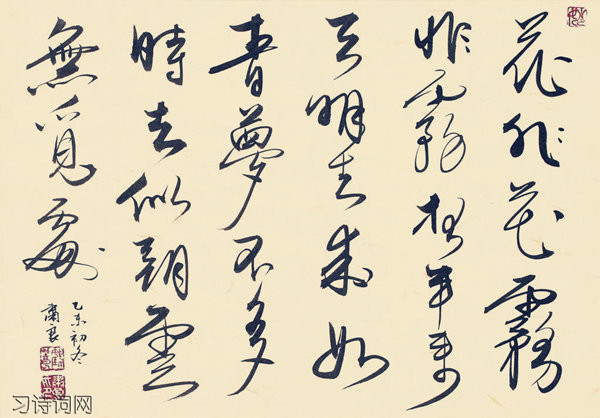 花非花霧
非霧夜半來
天明去來如
春夢不多
時去似朝雲
無覓處
乙未初冬
习诗词网